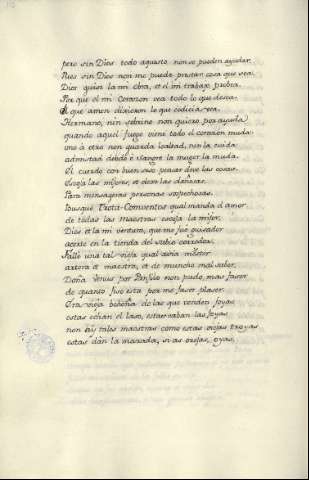 pero sin Dios todo aquesto non vos pueden ayudar.
Pues sin Dios non me puede prestar cosa que sea.
Dios guíe la mi obra, et el mi trabajo provea.
Por que el mi Corazon vea todo lo que desea.
El que amen dixieron lo que codicia vea.
Hermano, nin sobrino non quiero por ayuda
quando aquel fuego viene todo el corazon muda:
uno a otro non guarda lealtad, nin la cuida
admistad, debdo e sangre la muger la muda.
El cuerdo con buen seso pensar debe las cosas.
Escoja las mijores, et dexe las dañosas.
Para mensagera personas sospechosas.
Busque Trota-Conventos qual manda el amor
de todas las maestras escoja la mejor.
Dios et la mi ventura, que me fue guisador
acerte en la tienda del sabio corredor.
Falle una tal vieja qual avia mester
artera et maestra, et de mucho mal saber.
Doña Venus por Panfilo non pudo mas faser
de quanto fiso esta por me faser plaser.
Era vieja buhona de las que venden joyas
estas echan el laso, estas cavan las foyas
non hay tales maestras como estas viejas troyas
estas dan la mazada, si as orejas, oyas.